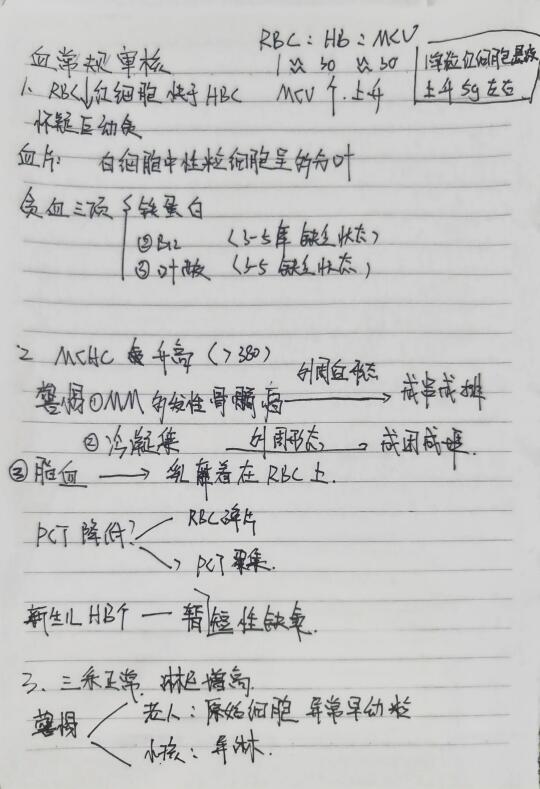 RBC : HB : MCV
血常规审核 1 : 30 : 30
1单位红细胞悬液
上升5g左右
1、RBC↓红细胞 快于HBC MCV↑上升
怀疑巨幼贫
血片: 白细胞中性粒细胞呈多分叶
贫血三项 ①铁蛋白
②B12 (3-5年缺乏状态)
③叶酸 (3-5缺乏状态)
2 MCHC 升高 (>380)
警惕 ①MM 多发性骨髓瘤 外周血形态 → 成串成排
② 冷凝集 外周形态 → 成团成堆.
③ 脂血 → 乳糜着在RBC上.
PCT降低? RBC碎片
→ PCT聚集.
新生儿HB↑ — 暂短性缺氧.
3、三系正常、淋巴增高
警惕 老人: 原始细胞 异常早幼粒
小孩: 异淋.